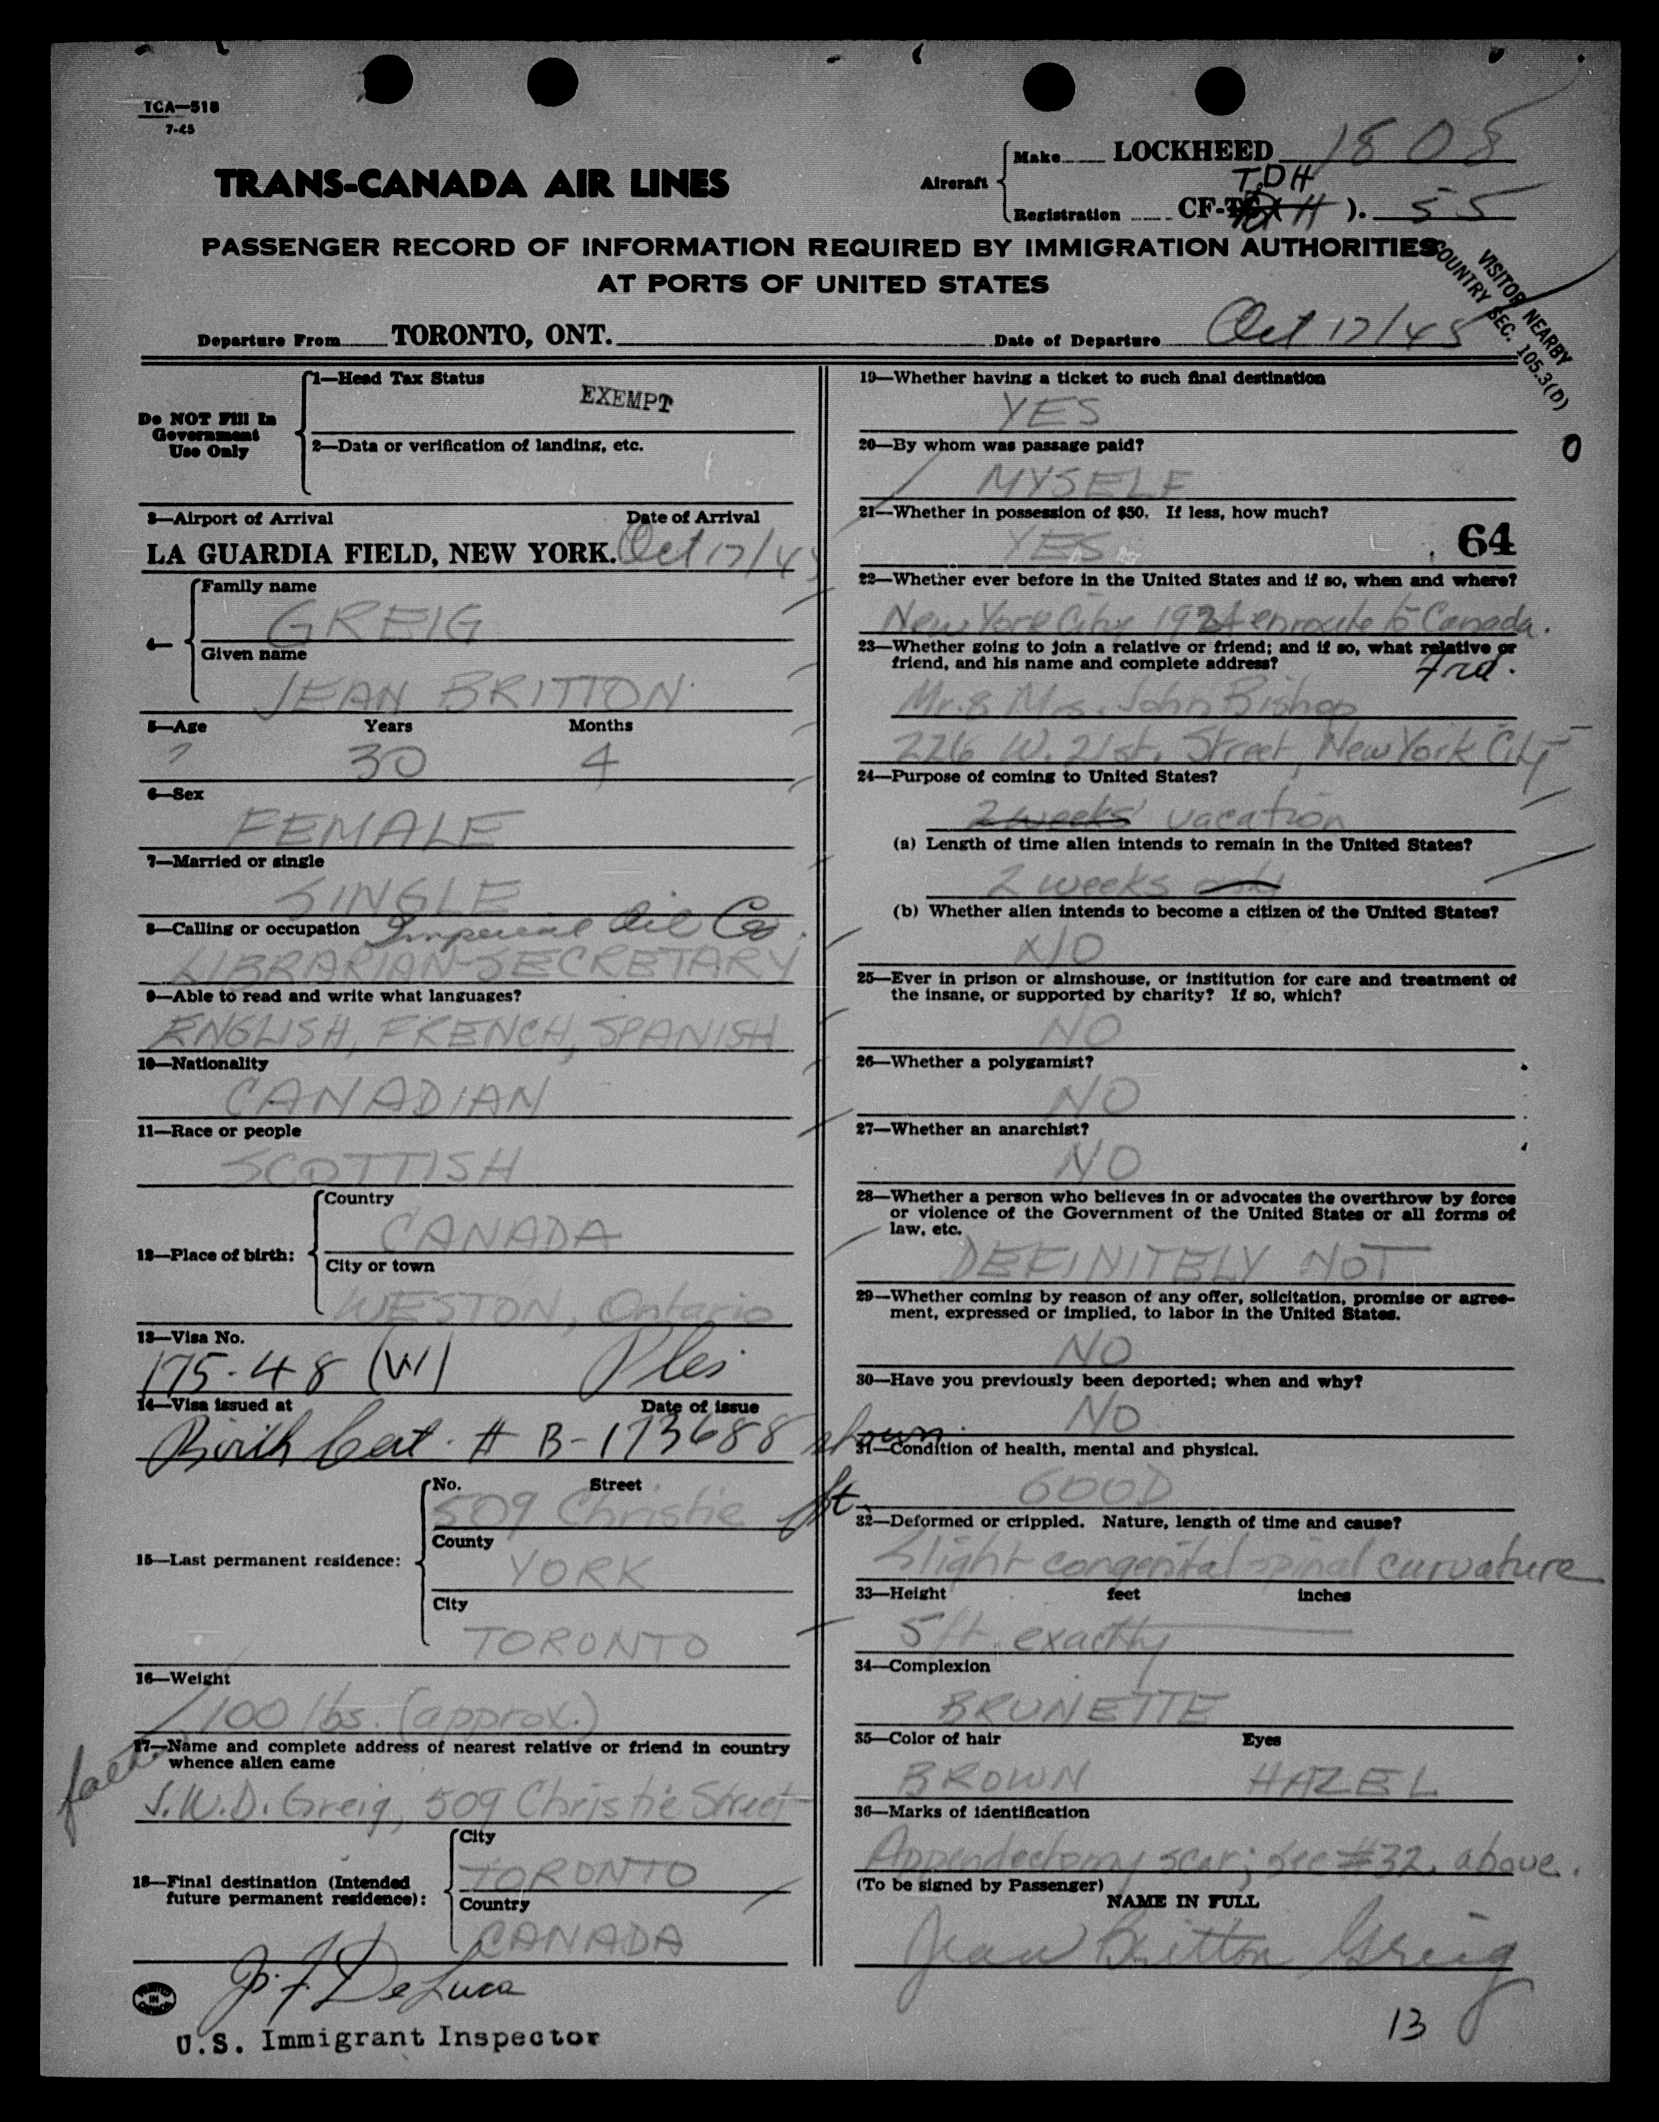 TCA—518
7-45
TRANS-CANADA AIR LINES
Aircraft
Make LOCKHEED 1808
TDH
Registration CF-T ). 55
PASSENGER RECORD OF INFORMATION REQUIRED BY IMMIGRATION AUTHORITIES
AT PORTS OF UNITED STATES
VISITOR NEARBY
COUNTRY SEC. 105.3(D)
Departure From TORONTO, ONT. Date of Departure Oct 17/45
Do NOT Fill In
Government
Use Only
1—Head Tax Status
EXEMPT
2—Data or verification of landing, etc.
3—Airport of Arrival Date of Arrival
LA GUARDIA FIELD, NEW YORK. Oct 17/45
4—
Family name
GREIG
Given name
JEAN BRITTON
5—Age Years Months
? 30 4
6—Sex
FEMALE
7—Married or single
SINGLE
8—Calling or occupation Imperial Oil Co.
LIBRARIAN-SECRETARY
9—Able to read and write what languages?
ENGLISH, FRENCH, SPANISH
10—Nationality
CANADIAN
11—Race or people
SCOTTISH
12—Place of birth:
Country
CANADA
City or town
WESTON, Ontario
13—Visa No.
175-48 (W)
14—Visa issued at Date of issue
Birth Cert. # B-173688 shown.
15—Last permanent residence:
No. Street
509 Christie St.
County
YORK
City
TORONTO
16—Weight
100 lbs. (approx.)
17—Name and complete address of nearest relative or friend in country
whence alien came
J.W.D. Greig, 509 Christie Street
18—Final destination (Intended
future permanent residence):
City
TORONTO
Country
CANADA
J. F. DeLuca
U.S. Immigrant Inspector
PRINTED
IN
CANADA
19—Whether having a ticket to such final destination
YES
0
20—By whom was passage paid?
MYSELF
21—Whether in possession of $50. If less, how much?
YES
64
22—Whether ever before in the United States and if so, when and where?
New York City 1924 enroute to Canada.
23—Whether going to join a relative or friend; and if so, what relative or
friend, and his name and complete address?
Frd.
Mr. & Mrs. John Bishop
226 W. 21st. Street, New York City
24—Purpose of coming to United States?
2 weeks' vacation
(a) Length of time alien intends to remain in the United States?
2 weeks only
(b) Whether alien intends to become a citizen of the United States?
NO
25—Ever in prison or almshouse, or institution for care and treatment of
the insane, or supported by charity? If so, which?
NO
26—Whether a polygamist?
NO
27—Whether an anarchist?
NO
28—Whether a person who believes in or advocates the overthrow by force
or violence of the Government of the United States or all forms of
law, etc.
DEFINITELY NOT
29—Whether coming by reason of any offer, solicitation, promise or agree-
ment, expressed or implied, to labor in the United States.
NO
30—Have you previously been deported; when and why?
NO
31—Condition of health, mental and physical.
GOOD
32—Deformed or crippled. Nature, length of time and cause?
Slight congenital spinal curvature
33—Height feet inches
5 ft. exactly
34—Complexion
BRUNETTE
35—Color of hair Eyes
BROWN HAZEL
36—Marks of identification
Appendectomy scar; see #32, above.
(To be signed by Passenger)
NAME IN FULL
Jean Britton Greig
13